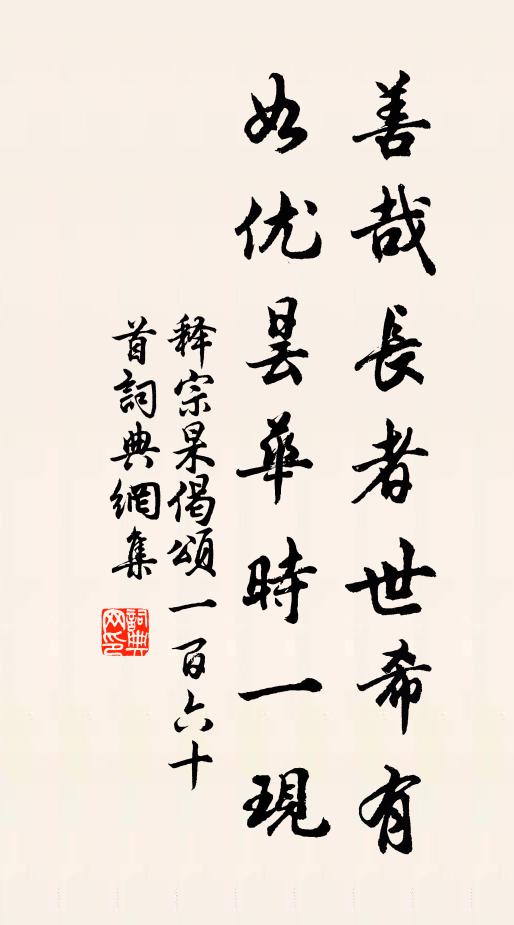 善哉長者世希有
如优曇華時一現
释宗杲偈頌一百六十
首詞典網集
詞典網印